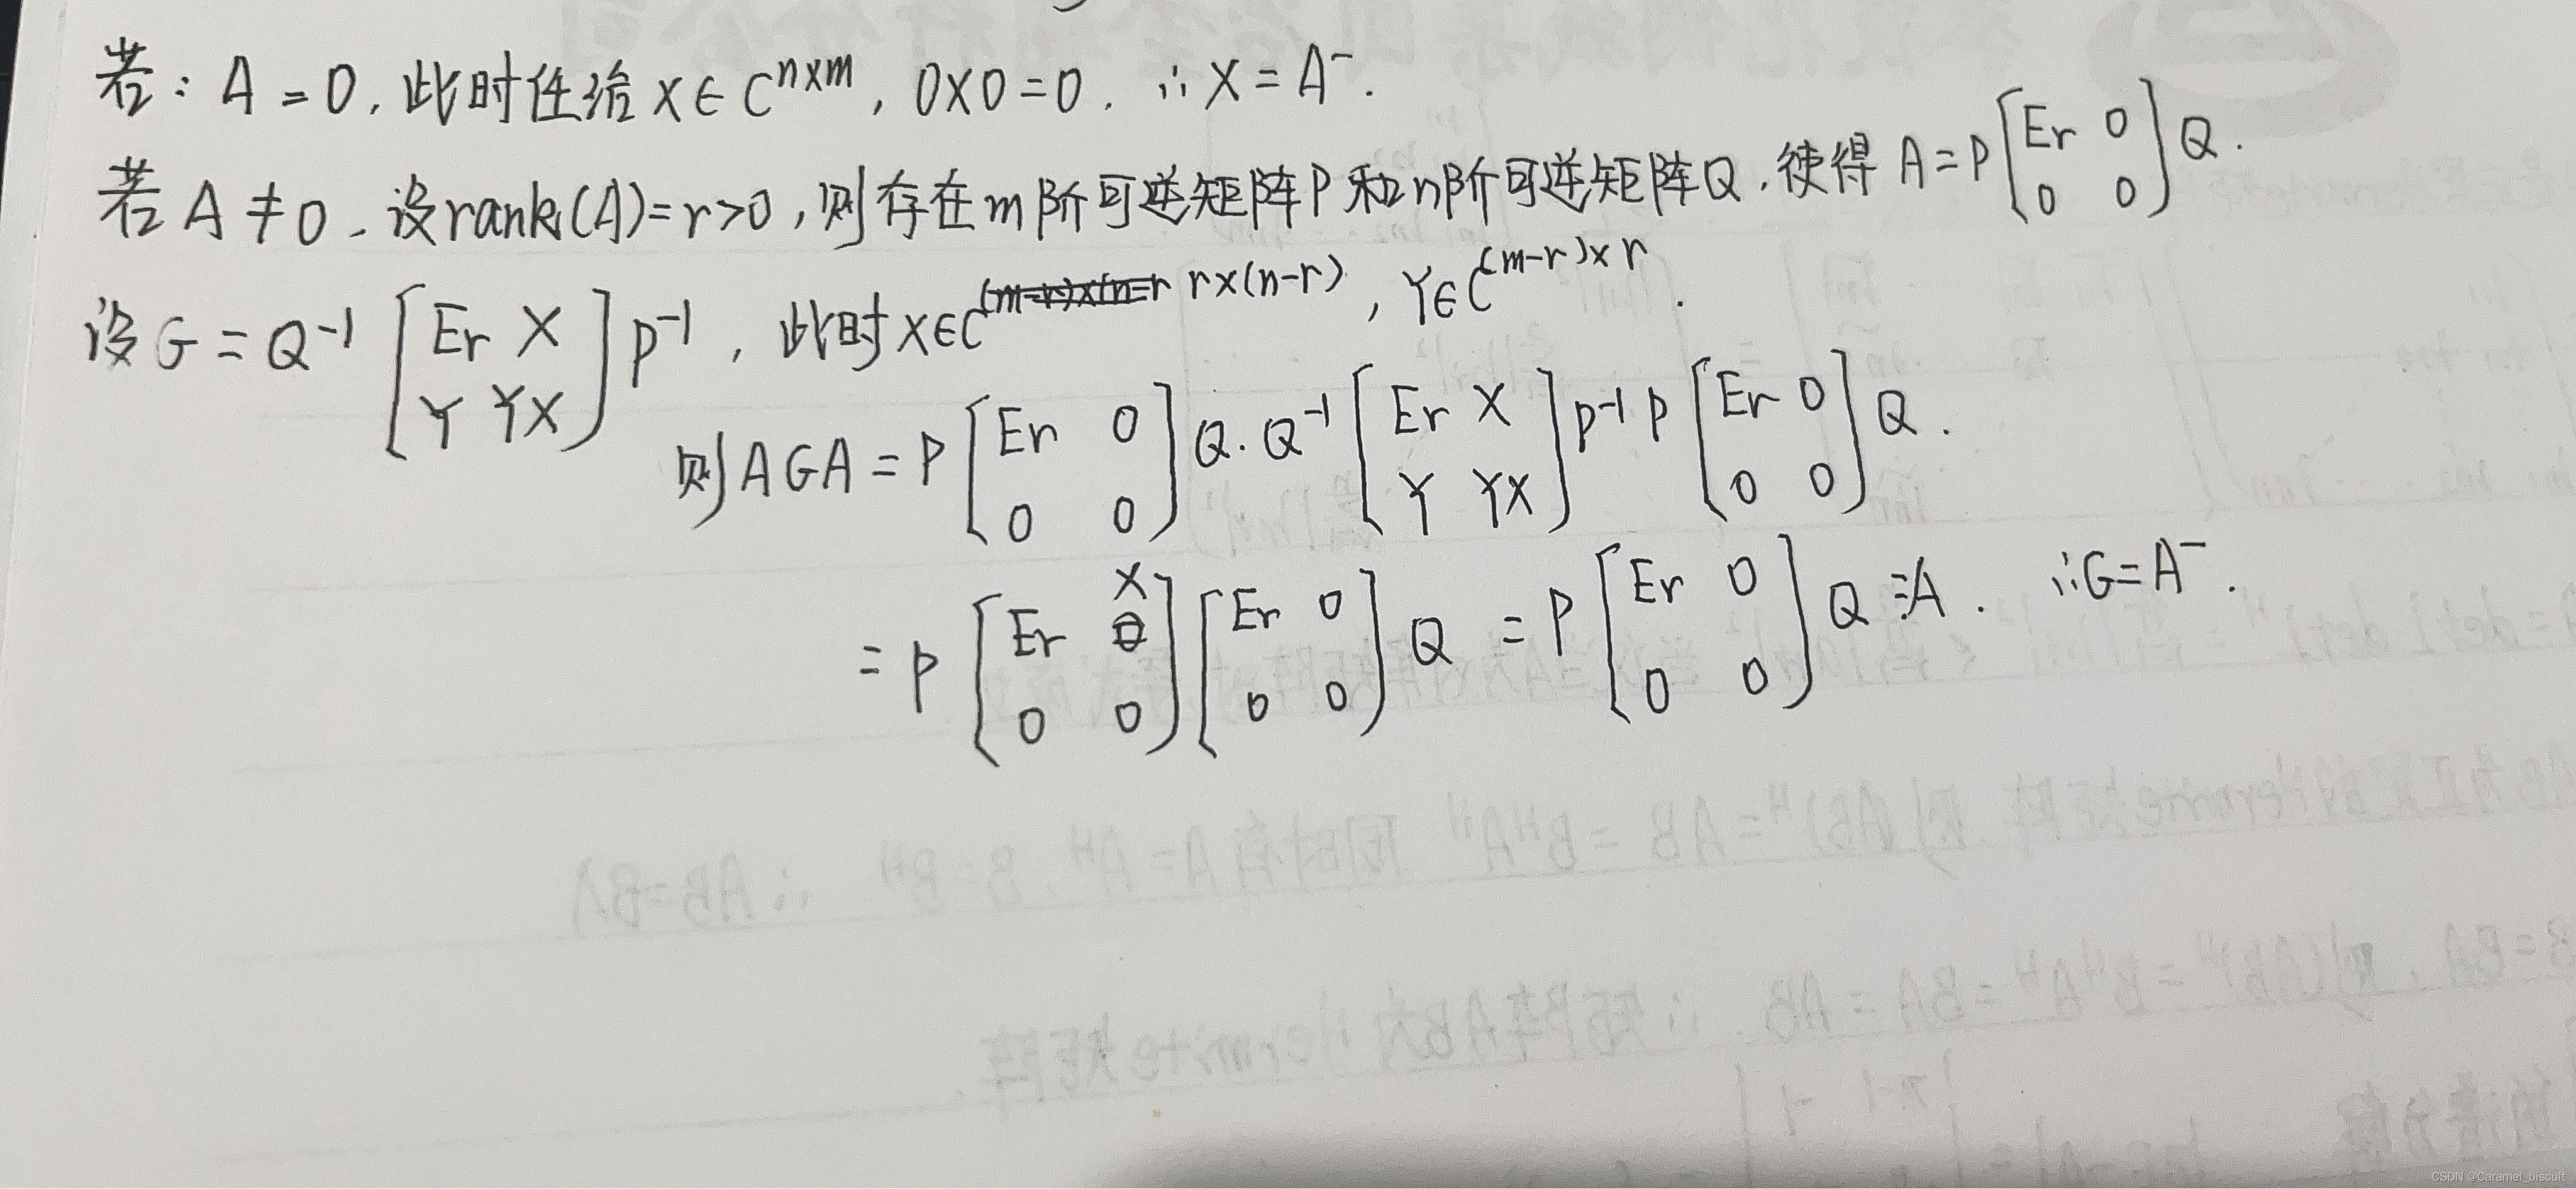 若：A=0，此时任给 X∈C^{n×m}，0X0=0．∴X=A^-．
若 A≠0．设rank(A)=r>0，则存在m阶可逆矩阵P和n阶可逆矩阵Q，使得 A=P[Er 0; 0 0]Q．
设G=Q^{-1}[Er X; Y YX]P^{-1}，此时X∈C^{r×(n-r)}，Y∈C^{(m-r)×r}．
则AGA=P[Er 0; 0 0]Q·Q^{-1}[Er X; Y YX]P^{-1}P[Er 0; 0 0]Q．
=P[Er X; 0 0][Er 0; 0 0]Q=P[Er 0; 0 0]Q=A．∴G=A^-．
CSDN @Caramel_biscuit